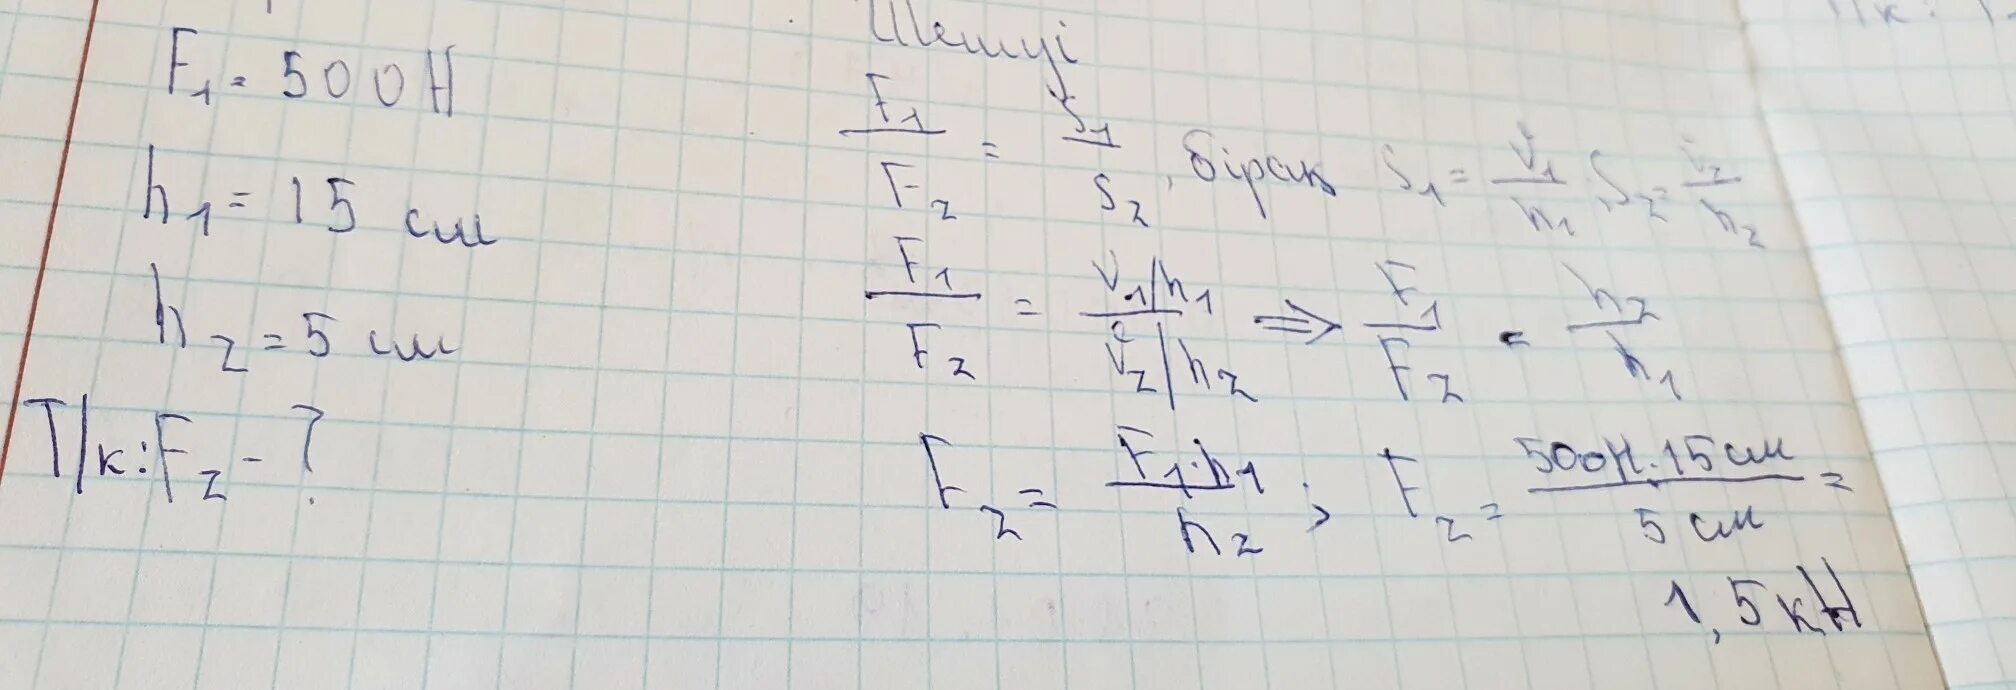 F₁ = 500Н
h₁ = 15 см
h₂ = 5 см
Т/к: F₂ - ?
Шешуі
F₁/F₂ = S₁/S₂, бірак S₁ = V₁/h₁; S₂ = V₂/h₂
F₁/F₂ = (V₁/h₁)/(V₂/h₂) ⇒ F₁/F₂ = h₂/h₁
F₂ = (F₁·h₁)/h₂; F₂ = (500Н·15 см)/(5 см) =
1,5 кН